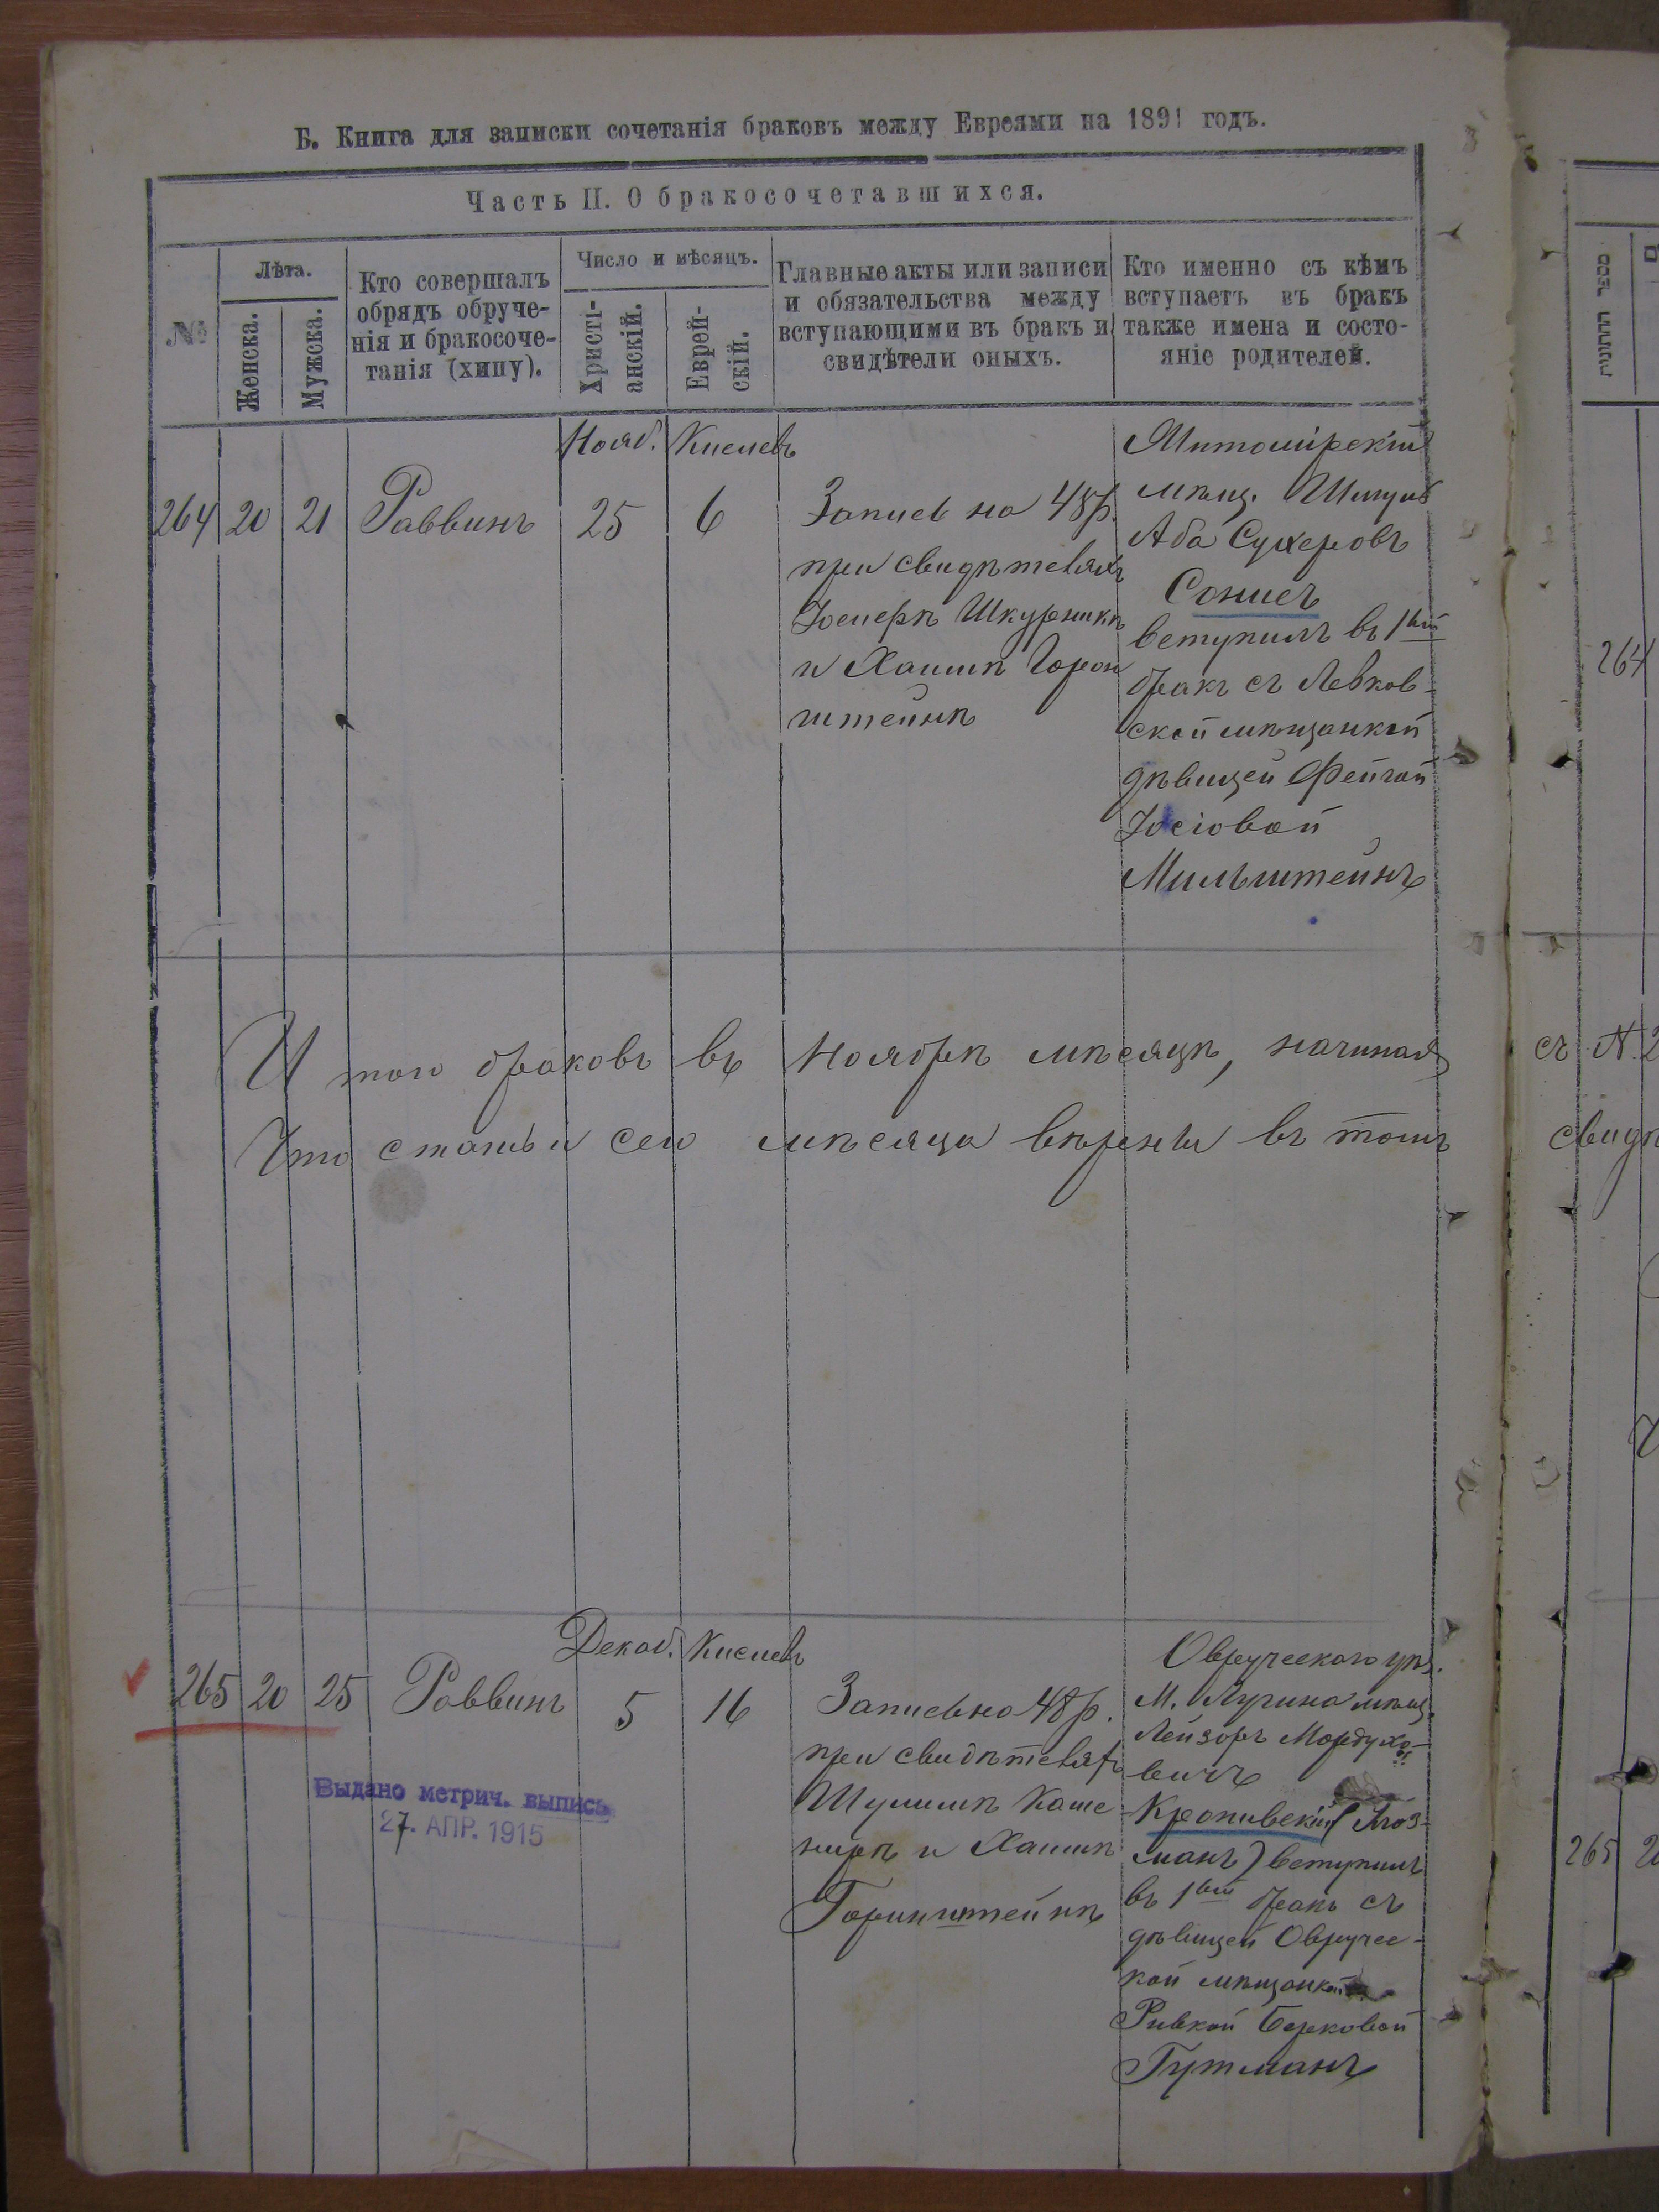 Б. Книга для записки сочетанія браковъ между Евреями на 1891 годъ.
Часть II. О бракосочетавшихся.
№
Лѣта.
Женска.
Мужска.
Кто совершалъ
обрядъ обруче-
нія и бракосоче-
танія (хипу).
Число и мѣсяцъ.
Христі-
анскій.
Еврей-
скій.
Главные акты или записи
и обязательства между
вступающими въ бракъ и
свидѣтели оныхъ.
Кто именно съ кѣмъ
вступаетъ въ бракъ
также имена и состо-
яніе родителей.
Нояб. Кислевъ
264 20 21 Раввинъ 25 6
Запись на 48 р.
при свидѣтеляхъ
Іосифѣ Шкурникѣ
и Хаимѣ Горен
штейнѣ
Житомірскій
мѣщ.
Аба Сухеровъ
вступилъ въ 1ый
бракъ съ Левков-
ской мѣщанкой
дѣвицей Фейгой
Іосіовой
Мильштейнъ
Итого браковъ въ Ноябрѣ мѣсяцѣ, начиная
Что статьи сего мѣсяца вѣрны въ томъ
Декаб. Кислевъ
265 20 25 Раввинъ 5 16
Запись на 48 р.
при свидѣтеляхъ
Шулимѣ Каше
нирѣ и Хаимѣ
Горинштейнѣ
Овручскаго уѣз.
М. Лугина мѣщ.
Лейзоръ Мордухо-
вичъ
Кропивскій
вступилъ
въ 1ый бракъ съ
дѣвицей Овручс-
кой мѣщанкой
Ривкой Берковой
Гутманъ
Выдано метрич. выпись
27. АПР. 1915
מספר החתונות
264
съ №. 2
свидѣ
265 2